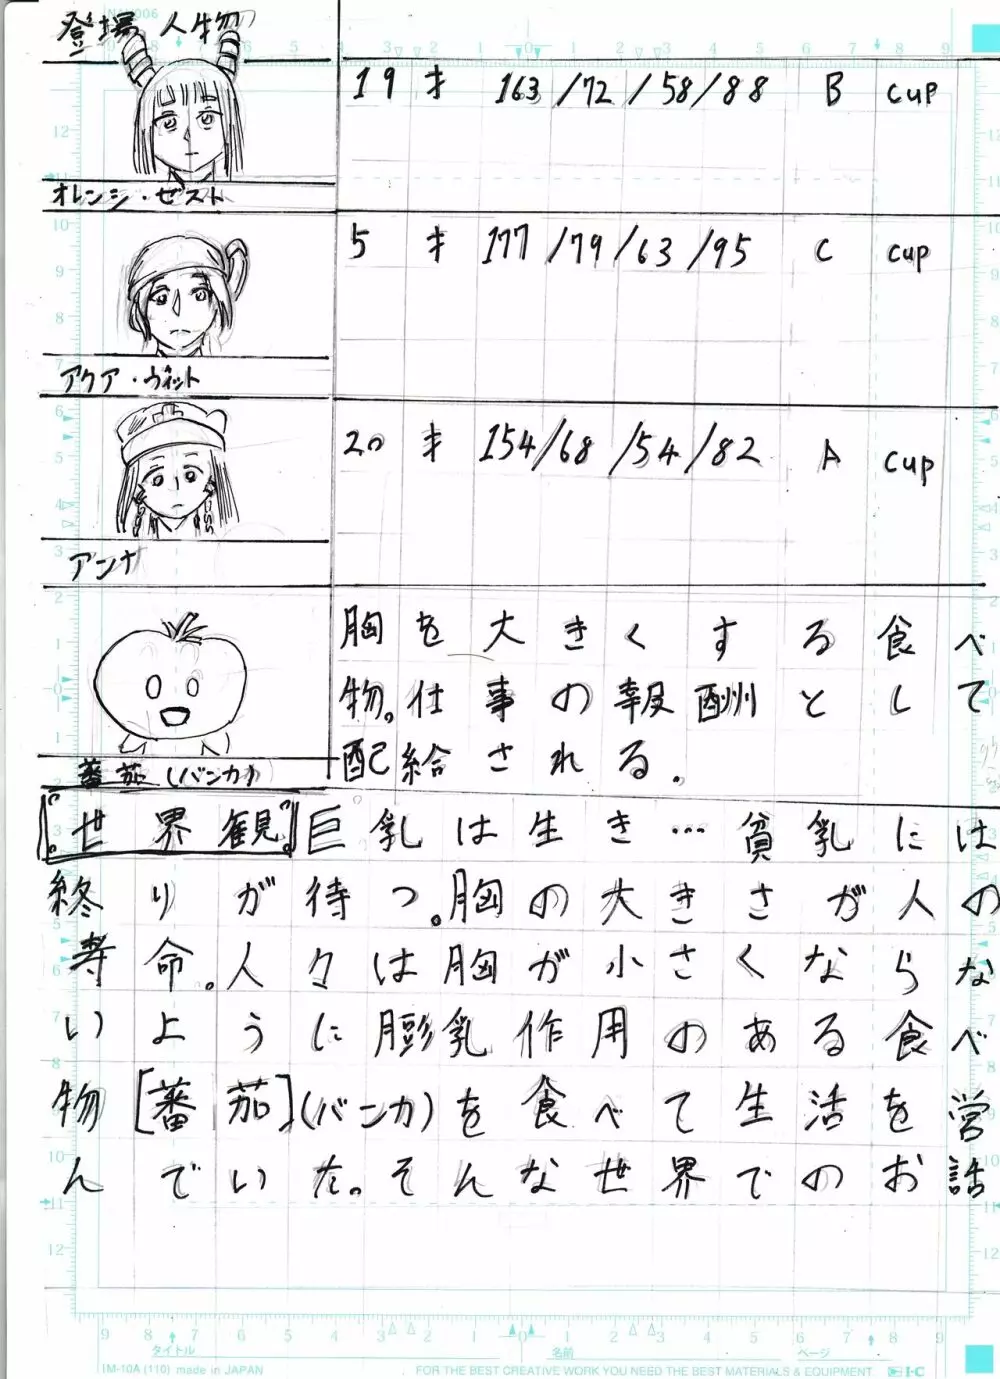 登場人物
19才 163/72/58/88 B cup
オレンジ・ゼスト
5才 177/79/63/95 C cup
アクア・ヴィット
20才 154/68/54/82 A cup
アンナ
胸を大きくする食べ
物。仕事の報酬として
配給される。
蕃茄(バンカ)
『世界観』巨乳は生き…貧乳には
終りが待つ。胸の大きさが人の
寿命。人々は胸が小さくならな
いように膨乳作用のある食べ
物[蕃茄](バンカ)を食べて生活を営
んでいた。そんな世界でのお話
タイトル 名前 ページ
IM-10A (110) made in JAPAN FOR THE BEST CREATIVE WORK YOU NEED THE BEST MATERIALS & EQUIPMENT I-C